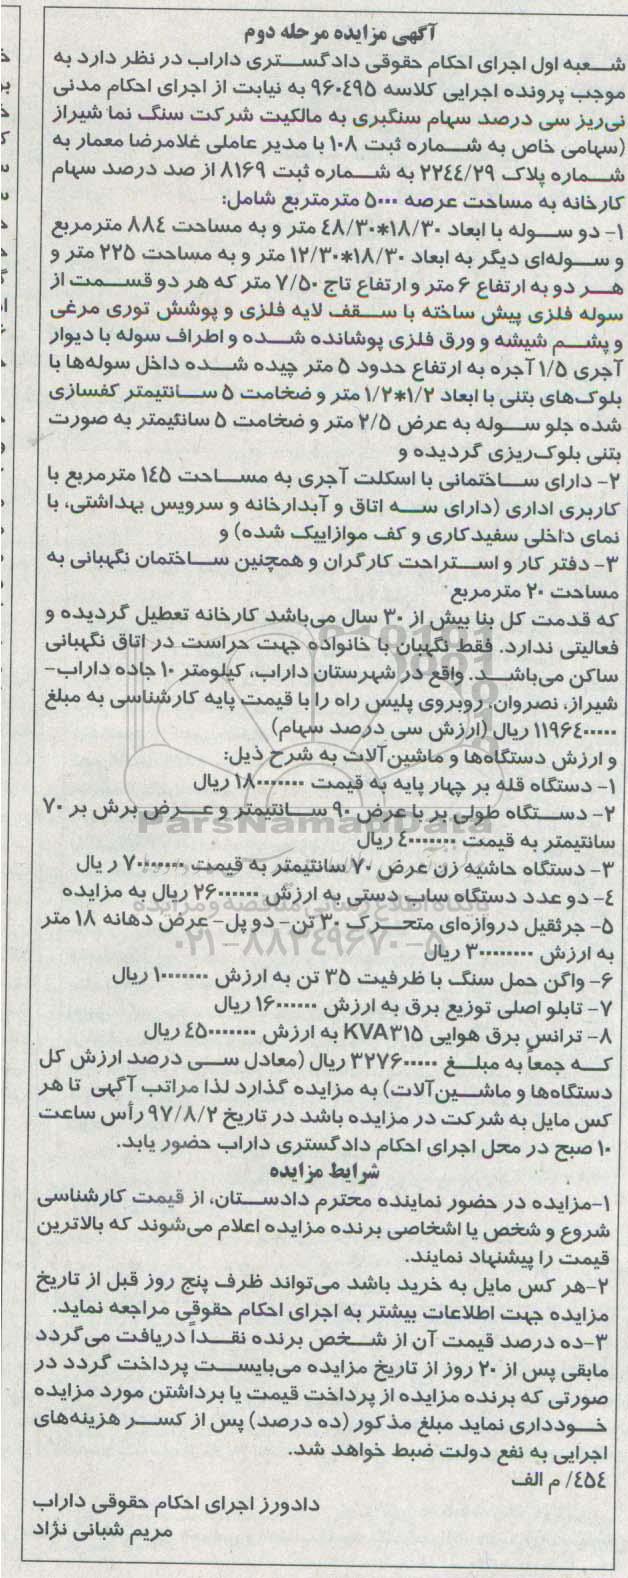 آگهی مزایده مرحله دوم
شعبه اول اجرای احکام حقوقی دادگستری داراب در نظر دارد به
موجب پرونده اجرایی کلاسه ۹۶۰۴۹۵ به نیابت از اجرای احکام مدنی
نی‌ریز سی درصد سهام سنگبری به مالکیت شرکت سنگ نما شیراز
(سهامی خاص به شماره ثبت ۱۰۸ با مدیر عاملی غلامرضا معمار به
شماره پلاک ۲۲۴۴/۲۹ به شماره ثبت ۸۱۶۹ از صد درصد سهام
کارخانه به مساحت عرصه ۵۰۰۰ مترمتربع شامل:
۱- دو سوله با ابعاد ۱۸/۳۰*۴۸/۳۰ متر و به مساحت ۸۸۴ مترمربع
و سوله‌ای دیگر به ابعاد ۱۸/۳۰*۱۲/۳۰ متر و به مساحت ۲۲۵ متر و
هر دو به ارتفاع ۶ متر و ارتفاع تاج ۷/۵۰ متر که هر دو قسمت از
سوله فلزی پیش ساخته با سقف لایه فلزی و پوشش توری مرغی
و پشم شیشه و ورق فلزی پوشانده شده و اطراف سوله با دیوار
آجری ۱/۵ آجره به ارتفاع حدود ۵ متر چیده شده داخل سوله‌ها با
بلوک‌های بتنی با ابعاد ۱/۲*۱/۲ متر و ضخامت ۵ سانتیمتر کفسازی
شده جلو سوله به عرض ۲/۵ متر و ضخامت ۵ سانتیمتر به صورت
بتنی بلوک‌ریزی گردیده و
۲- دارای ساختمانی با اسکلت آجری به مساحت ۱۴۵ مترمربع با
کاربری اداری (دارای سه اتاق و آبدارخانه و سرویس بهداشتی، با
نمای داخلی سفیدکاری و کف موازاییک شده) و
۳- دفتر کار و استراحت کارگران و همچنین ساختمان نگهبانی به
مساحت ۲۰ مترمربع
که قدمت کل بنا بیش از ۳۰ سال می‌باشد کارخانه تعطیل گردیده و
فعالیتی ندارد. فقط نگهبان با خانواده جهت حراست در اتاق نگهبانی
ساکن می‌باشد. واقع در شهرستان داراب، کیلومتر ۱۰ جاده داراب-
شیراز، نصروان، روبروی پلیس راه را با قیمت پایه کارشناسی به مبلغ
۱۱۹۶۴۰۰۰۰۰ ریال (ارزش سی درصد سهام)
و ارزش دستگاه‌ها و ماشین‌آلات به شرح ذیل:
۱- دستگاه قله بر چهار پایه به قیمت ۱۸۰۰۰۰۰۰۰ ریال
۲- دستگاه طولی بر با عرض ۹۰ سانتیمتر و عرض برش بر ۷۰
سانتیمتر به قیمت ۴۰۰۰۰۰۰۰ ریال
۳- دستگاه حاشیه زن عرض ۷۰ سانتیمتر به قیمت ۷۰۰۰۰۰۰۰ ریال
۴- دو عدد دستگاه ساب دستی به ارزش ۲۶۰۰۰۰۰۰ ریال به مزایده
۵- جرثقیل دروازه‌ای متحرک ۳۰ تن- دو پل- عرض دهانه ۱۸ متر
به ارزش ۳۰۰۰۰۰۰۰۰ ریال
۶- واگن حمل سنگ با ظرفیت ۳۵ تن به ارزش ۱۰۰۰۰۰۰۰ ریال
۷- تابلو اصلی توزیع برق به ارزش ۱۶۰۰۰۰۰۰ ریال
۸- ترانس برق هوایی KVA۳۱۵ به ارزش ۴۵۰۰۰۰۰۰۰ ریال
که جمعاً به مبلغ ۳۲۷۶۰۰۰۰۰ ریال (معادل سی درصد ارزش کل
دستگاه‌ها و ماشین‌آلات) به مزایده گذارد لذا مراتب آگهی تا هر
کس مایل به شرکت در مزایده باشد در تاریخ ۹۷/۸/۲ رأس ساعت
۱۰ صبح در محل اجرای احکام دادگستری داراب حضور یابد.
شرایط مزایده
۱-مزایده در حضور نماینده محترم دادستان، از قیمت کارشناسی
شروع و شخص یا اشخاصی برنده مزایده اعلام می‌شوند که بالاترین
قیمت را پیشنهاد نمایند.
۲-هر کس مایل به خرید باشد می‌تواند ظرف پنج روز قبل از تاریخ
مزایده جهت اطلاعات بیشتر به اجرای احکام حقوقی مراجعه نماید.
۳-ده درصد قیمت آن از شخص برنده نقداً دریافت می‌گردد
مابقی پس از ۲۰ روز از تاریخ مزایده می‌بایست پرداخت گردد در
صورتی که برنده مزایده از پرداخت قیمت یا برداشتن مورد مزایده
خودداری نماید مبلغ مذکور (ده درصد) پس از کسر هزینه‌های
اجرایی به نفع دولت ضبط خواهد شد.
۴۵۴/ م الف
دادورز اجرای احکام حقوقی داراب
مریم شبانی نژاد
ParsNamadData
۰۲۱-۸۸۳۴۹۶۷۰-۵